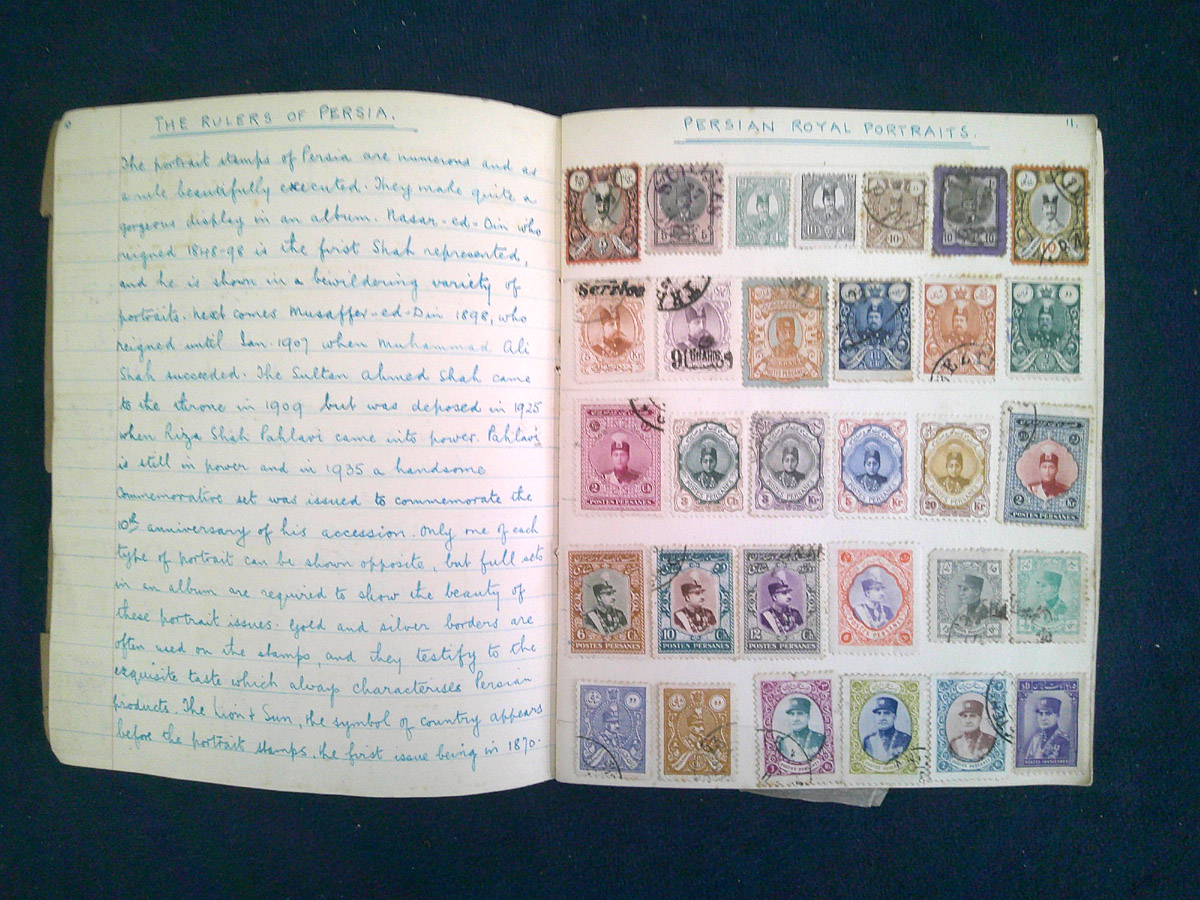 THE RULERS OF PERSIA.
The portrait stamps of Persia are numerous and as
a rule beautifully executed. They make quite a
gorgeous display in an album. Nasar-ed-Din who
reigned 1848-98 is the first Shah represented,
and he is shown in a bewildering variety of
portraits. Next comes Musaffer-ed-Din 1898, who
reigned until Jan. 1907 when Muhammad Ali
Shah succeeded. The Sultan Ahmed Shah came
to the throne in 1909 but was deposed in 1925
when Riza Shah Pahlavi came into power. Pahlavi
is still in power and in 1935 a handsome
Commemorative set was issued to commemorate the
10th anniversary of his accession. Only one of each
type of portrait can be shown opposite, but full sets
in an album are required to show the beauty of
these portrait issues. Gold and silver borders are
often used on the stamps, and they testify to the
exquisite taste which always characterises Persian
products. The Lion & Sun, the symbol of country appears
before the portrait stamps. The first issue being in 1870.
PERSIAN ROYAL PORTRAITS.
11.
5
5
10
10
10
Service
5 Kr
9 CHAHIS
POSTES PERSANES
2 Ch
POSTES PERSANES
3 Ch
3 Kr
5 Kr
20 Kr
2 Kr
POSTES PERSANES
6 CH
POSTES PERSANES
10 CH
POSTES PERSANES
12 CH
POSTES PERSANES
POSTES PERSANES